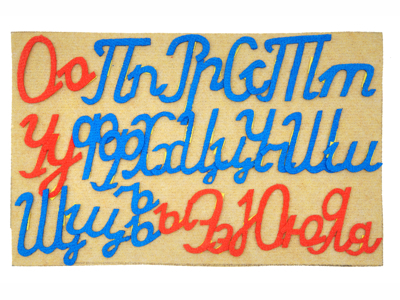 Оо Пп Рр Сс Тт
Уу Фф Хх Цц Чч Шш
Щщ ъ ь ы Ээ Юю Яя